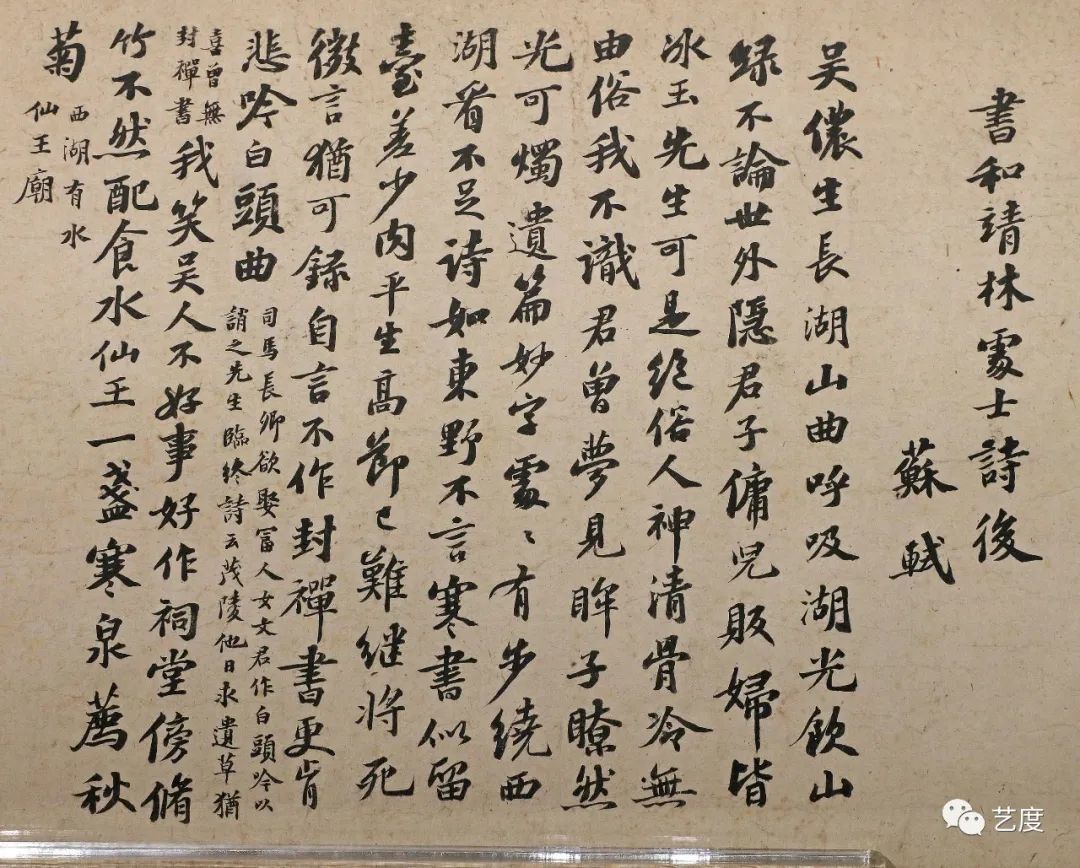 書和靖林處士詩後
蘇軾
吴儂生長湖山曲呼吸湖光飲山
緑不論世外隱君子傭兒販婦皆
冰玉先生可是絕俗人神清骨冷無
由俗我不識君曾夢見眸子瞭然
光可燭遺篇妙字處〻有步繞西
湖看不足詩如東野不言寒書似留
臺差少肉平生髙節已難継将死
微言猶可録自言不作封禪書更肯
悲吟白頭曲
司馬長卿欲娶冨人女文君作白頭吟以
誚之先生臨終詩云茂陵他日求遺草猶
喜曾無
封禪書
我笑吴人不好事好作祠堂傍脩
竹不然配食水仙王一盞寒泉薦秋
菊
西湖有水
仙王廟
艺度